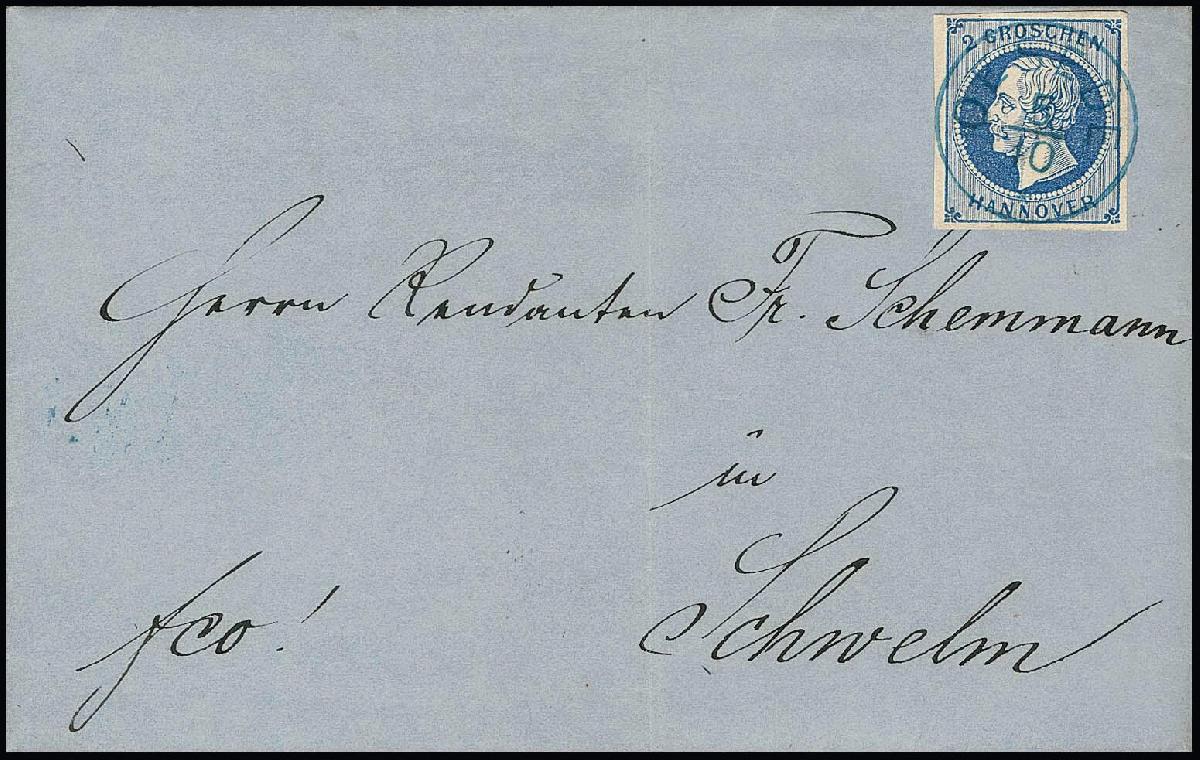 2 GROSCHEN
5
10
HANNOVER
Herrn Rendanten Fr. Schemmann
in
Schwelm
fco!